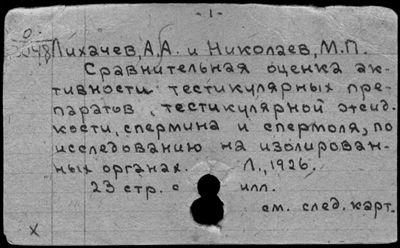 - 1 -
0
548 Лихачев, А.А. и Николаев, М.П.
Сравнительная оценка ак-
тивности тестикулярных пре-
паратов, тестикулярной жид-
кости, спермина и спермоля, по
исследованию на изолирован-
ных органах. Л., 1926.
23 стр. с илл.
см. след. карт.
x